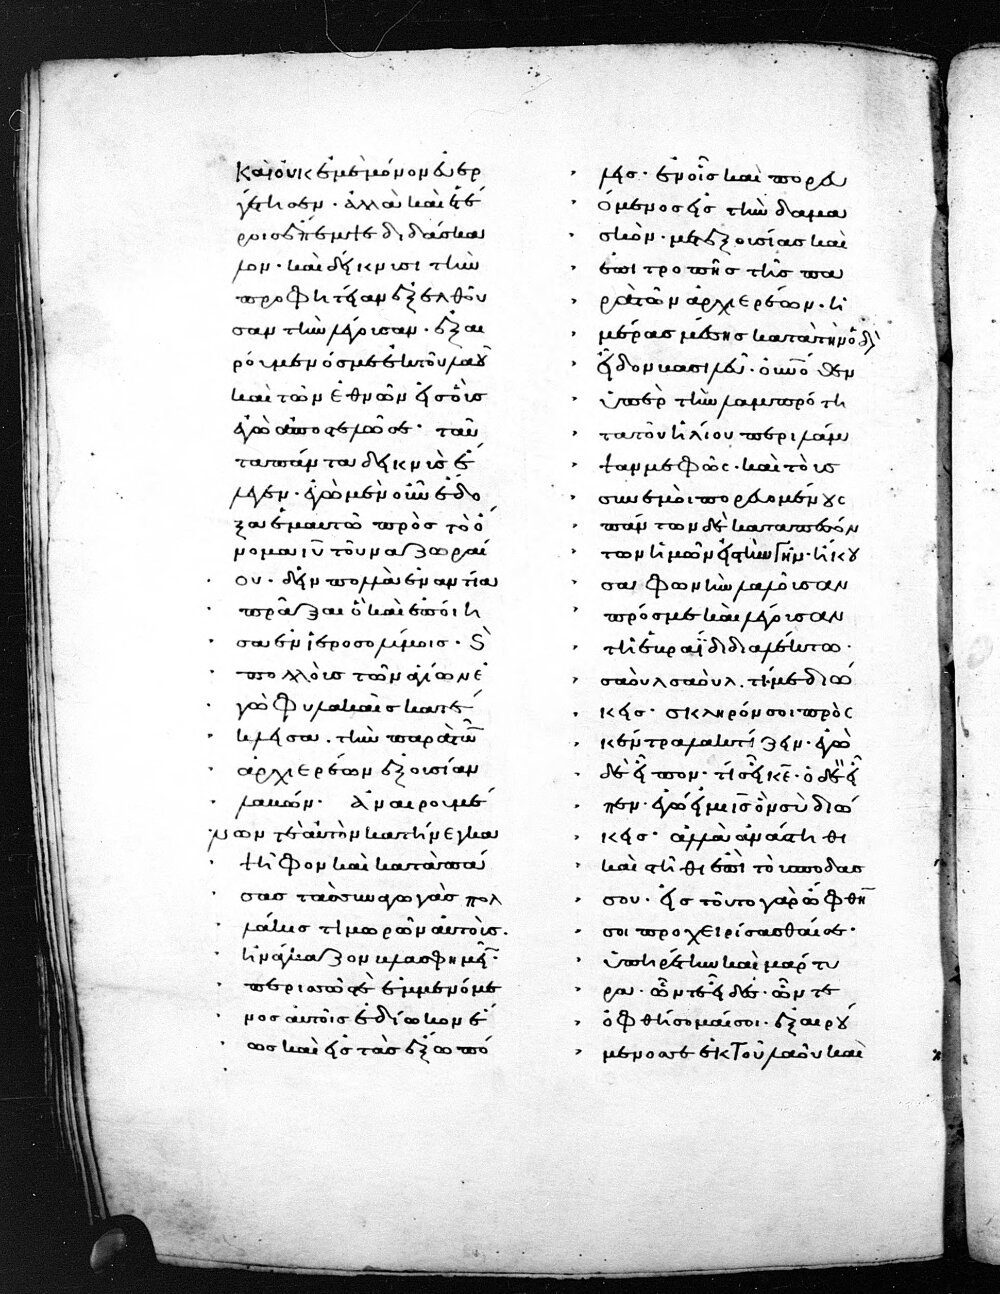 καὶ οὐκ ἐμὲ μόνον εὐερ
γέτησεν· ἀλλὰ καὶ ἑτέ
ροις ἔπεμψε διδάσκα
λον· καὶ δείκνυσι τὴν
προφητείαν ἐξελθοῦ
σαν τὴν λέγουσαν· ἐξαι
ρούμενός σε ἐκ τοῦ λαοῦ
καὶ τῶν ἐθνῶν εἰς οὓς
ἐγὼ ἀποστελῶ σε· ταῦ
τα πάντα δεικνὺς ἔ
λεγεν· ἐγὼ μὲν οὖν ἔδο
ξα ἐμαυτῶ πρὸς τὸ ὄ
νομα ιυ τοῦ ναζωραί
ου· δεῖν πολλὰ ἐναντία
πρᾶξαι ὃ καὶ ἐποίη
σα ἐν ἱεροσολύμοις· καὶ
πολλοὺς τῶν ἁγίων ἐ
γὼ φυλακαῖς κατέ
κλεισα· τὴν παρὰ τῶν
ἀρχιερέων ἐξουσίαν
λαβών· ἀναιρουμέ
νων τε αὐτῶν κατήνεγκα
ψῆφον καὶ κατὰ πά
σας τὰς συναγωγὰς πολ
λάκις τιμωρῶν αὐτοὺς·
ἠνάγκαζον βλασφημεῖν·
περισσῶς τὲ ἐμμαινόμε
νος αὐτοῖς ἐδίωκον ἕ
ως καὶ εἰς τὰς ἔξω πό
λεις· ἐν οἷς καὶ πορευ
όμενος εἰς τὴν δαμα
σκὸν· μετ ἐξουσίας καὶ
ἐπιτροπῆς τῆς πα
ρὰ τῶν ἀρχιερέων· ἡ
μέρας μέσης κατὰ τὴν ὁδὸν
εἶδον βασιλεῦ· οὐνοθεν
ὑπὲρ τὴν λαμπρότη
τα τοῦ ἡλίου περιλάμ
ψαν με φῶς· καὶ τοὺς
σὺν ἐμοὶ πορευομένους
πάντων δὲ καταπεσόν
των ἡμῶν εἰς τὴν γῆν· ἤκου
σα φωνὴν λαλοῦσαν
πρός με καὶ λέγουσαν
τῆ ἑβραΐδι διαλέκτω·
σαοὺλ σαούλ· τί με διώ
κεις· σκληρόν σοι πρὸς
κέντρα λακτίζειν· ἐγὼ
δὲ εἶπον· τίς εἶ κε· ὁ δὲ εἶ
πεν· ἐγώ εἰμι ις ὃν σὺ διώ
κεις· ἀλλὰ ἀνάστηθι
καὶ στῆθι ἐπὶ τοὺς πόδας
σου· εἰς τοῦτο γὰρ ὤφθην
σοι προχειρίσασθαί σε·
ὑπηρέτην καὶ μάρτυ
ρα· ὧν τε εἶδες· ὧν τε
ὀφθήσομαί σοι· ἐξαιρού
μενός σε ἐκ τοῦ λαοῦ καὶ